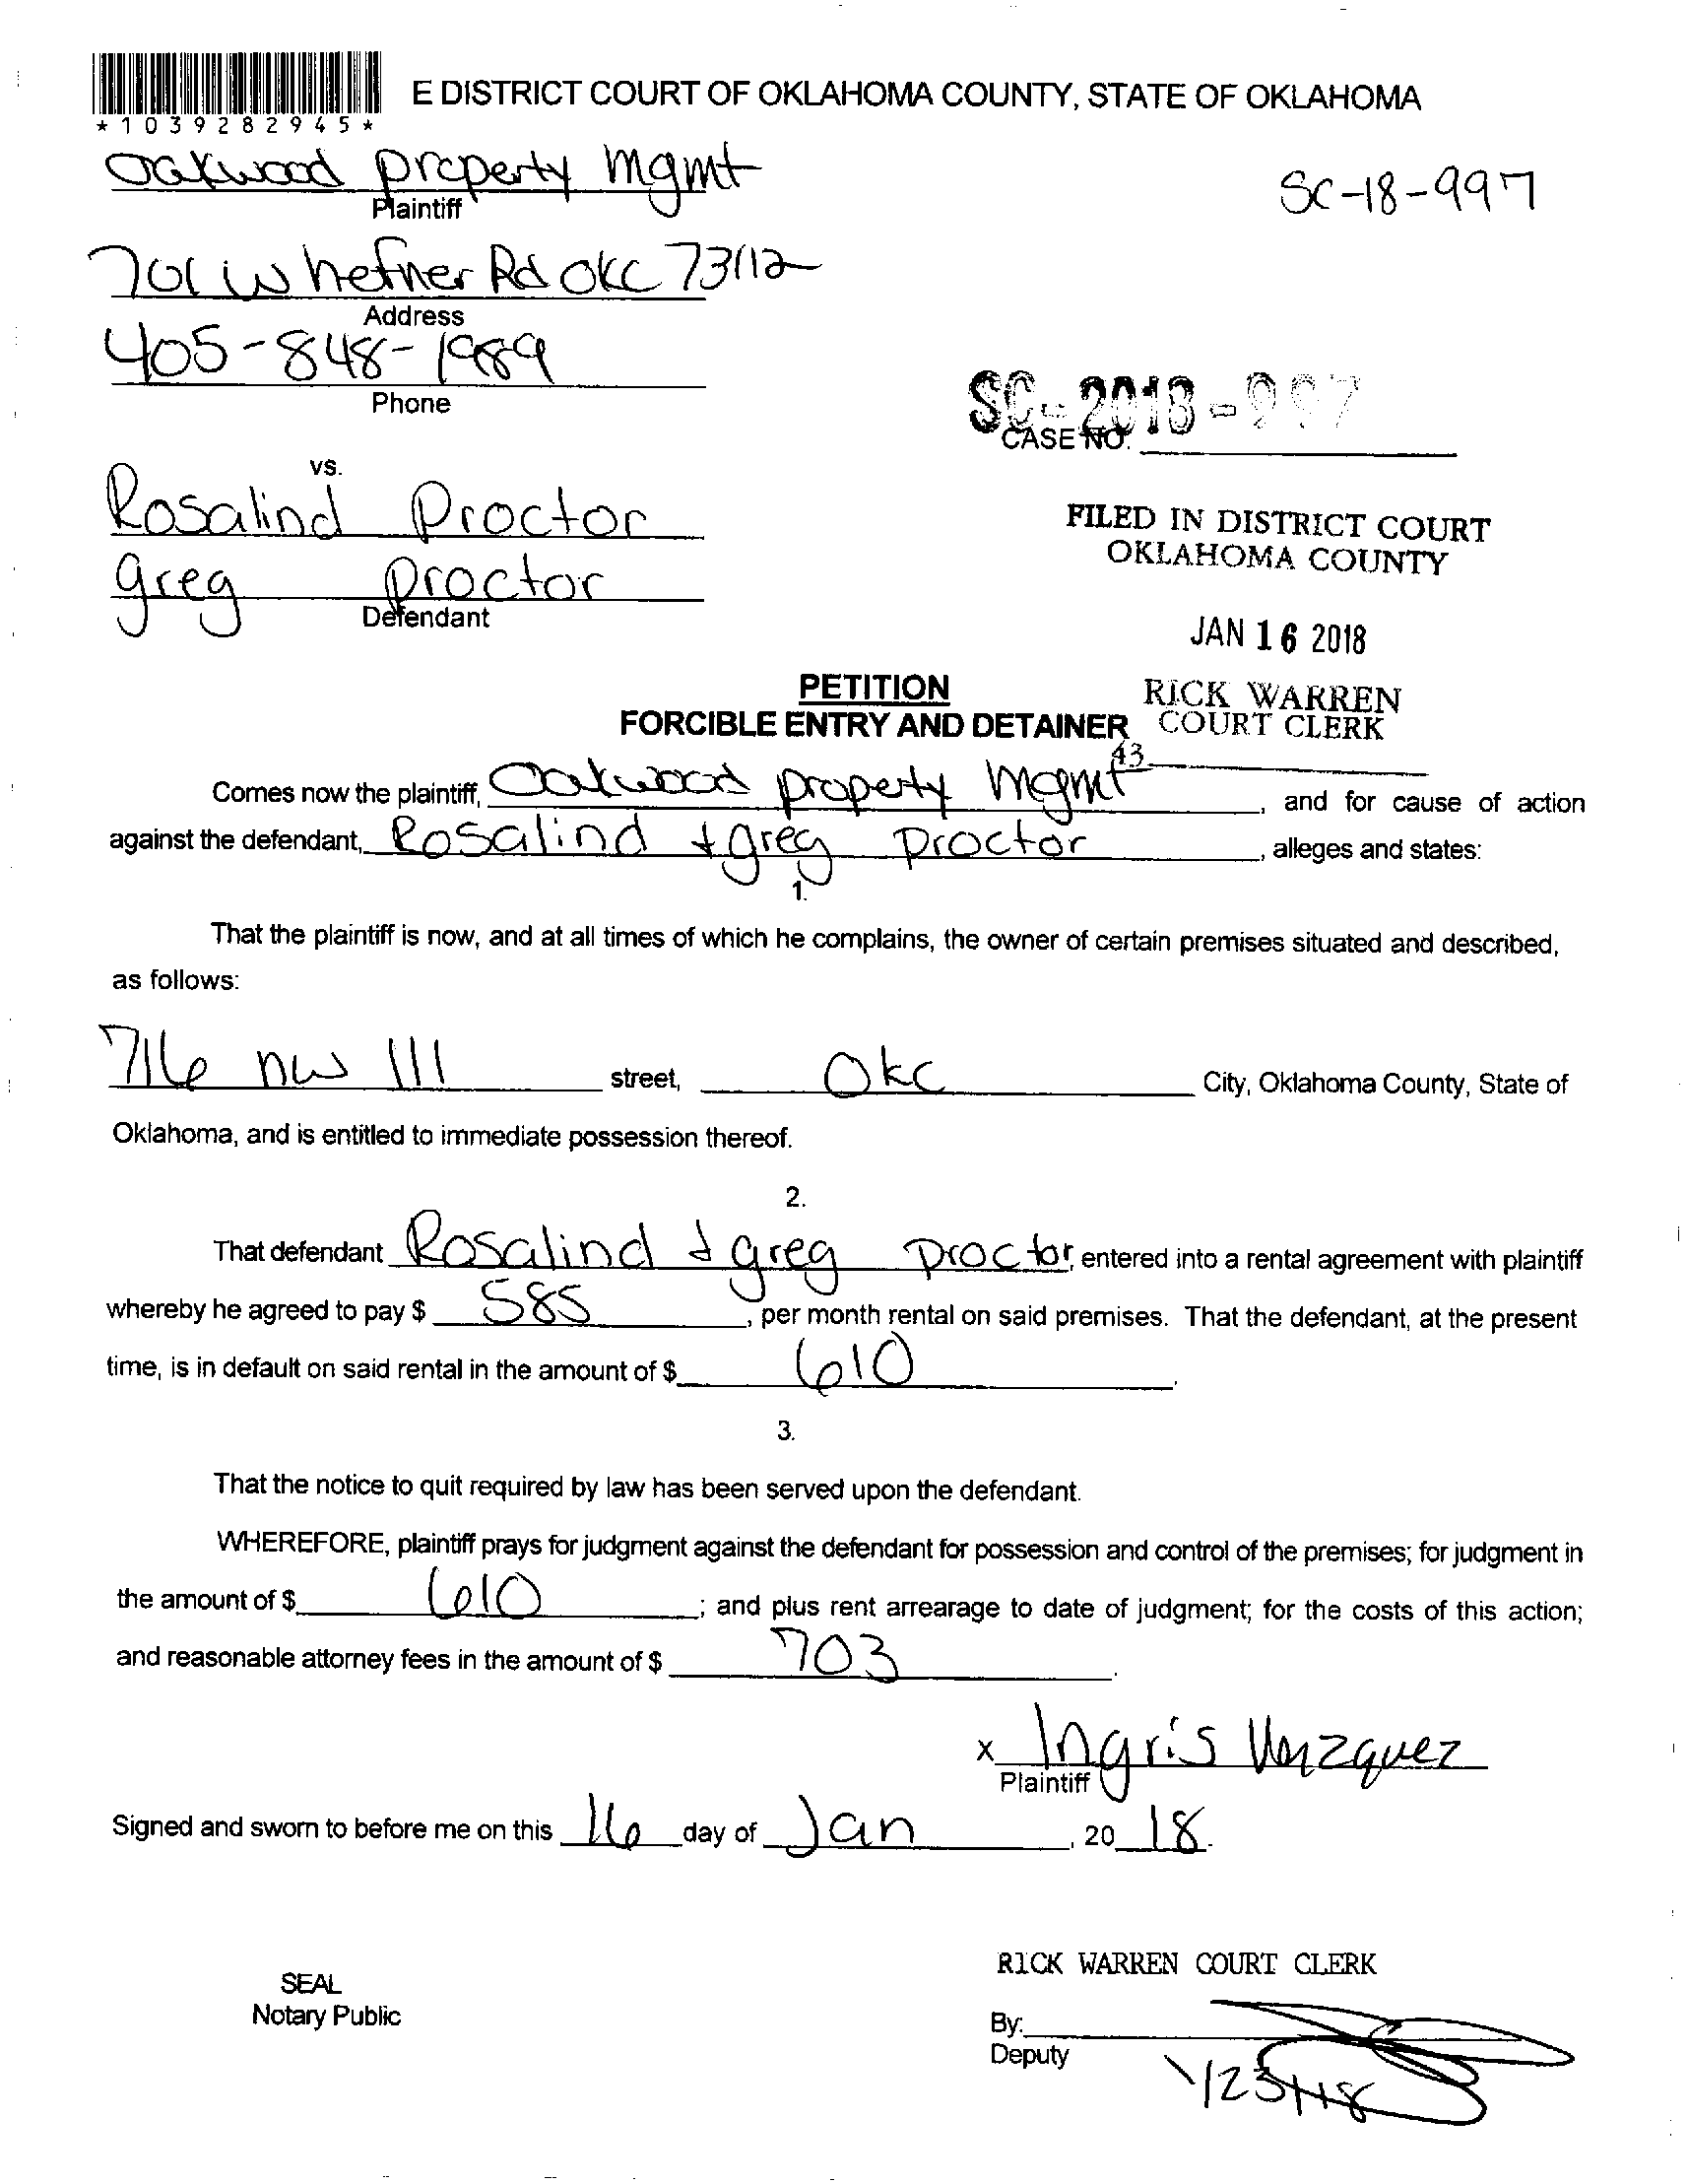 E DISTRICT COURT OF OKLAHOMA COUNTY, STATE OF OKLAHOMA
*1039282945*
Oakwood property mgmt
Plaintiff
SC-18-997
701 W hefner Rd OKC 73112
Address
405-848-1989
Phone
SC-2018-997
CASE NO.
vs.
Rosalind Proctor
greg proctor
Defendant
FILED IN DISTRICT COURT
OKLAHOMA COUNTY
JAN 16 2018
PETITION
RICK WARREN
FORCIBLE ENTRY AND DETAINER
COURT CLERK
43
Comes now the plaintiff, Oakwood property mgmt, and for cause of action
against the defendant, Rosalind + greg Proctor, alleges and states:
1.
That the plaintiff is now, and at all times of which he complains, the owner of certain premises situated and described,
as follows:
716 nw 111 street, Okc City, Oklahoma County, State of
Oklahoma, and is entitled to immediate possession thereof.
2.
That defendant Rosalind + greg Proctor, entered into a rental agreement with plaintiff
whereby he agreed to pay $ 585, per month rental on said premises. That the defendant, at the present
time, is in default on said rental in the amount of $ 610.
3.
That the notice to quit required by law has been served upon the defendant.
WHEREFORE, plaintiff prays for judgment against the defendant for possession and control of the premises; for judgment in
the amount of $ 610; and plus rent arrearage to date of judgment; for the costs of this action;
and reasonable attorney fees in the amount of $ 703.
x Ingris
Plaintiff
Signed and sworn to before me on this 16 day of Jan, 20 18.
RICK WARREN COURT CLERK
SEAL
Notary Public
By:
Deputy